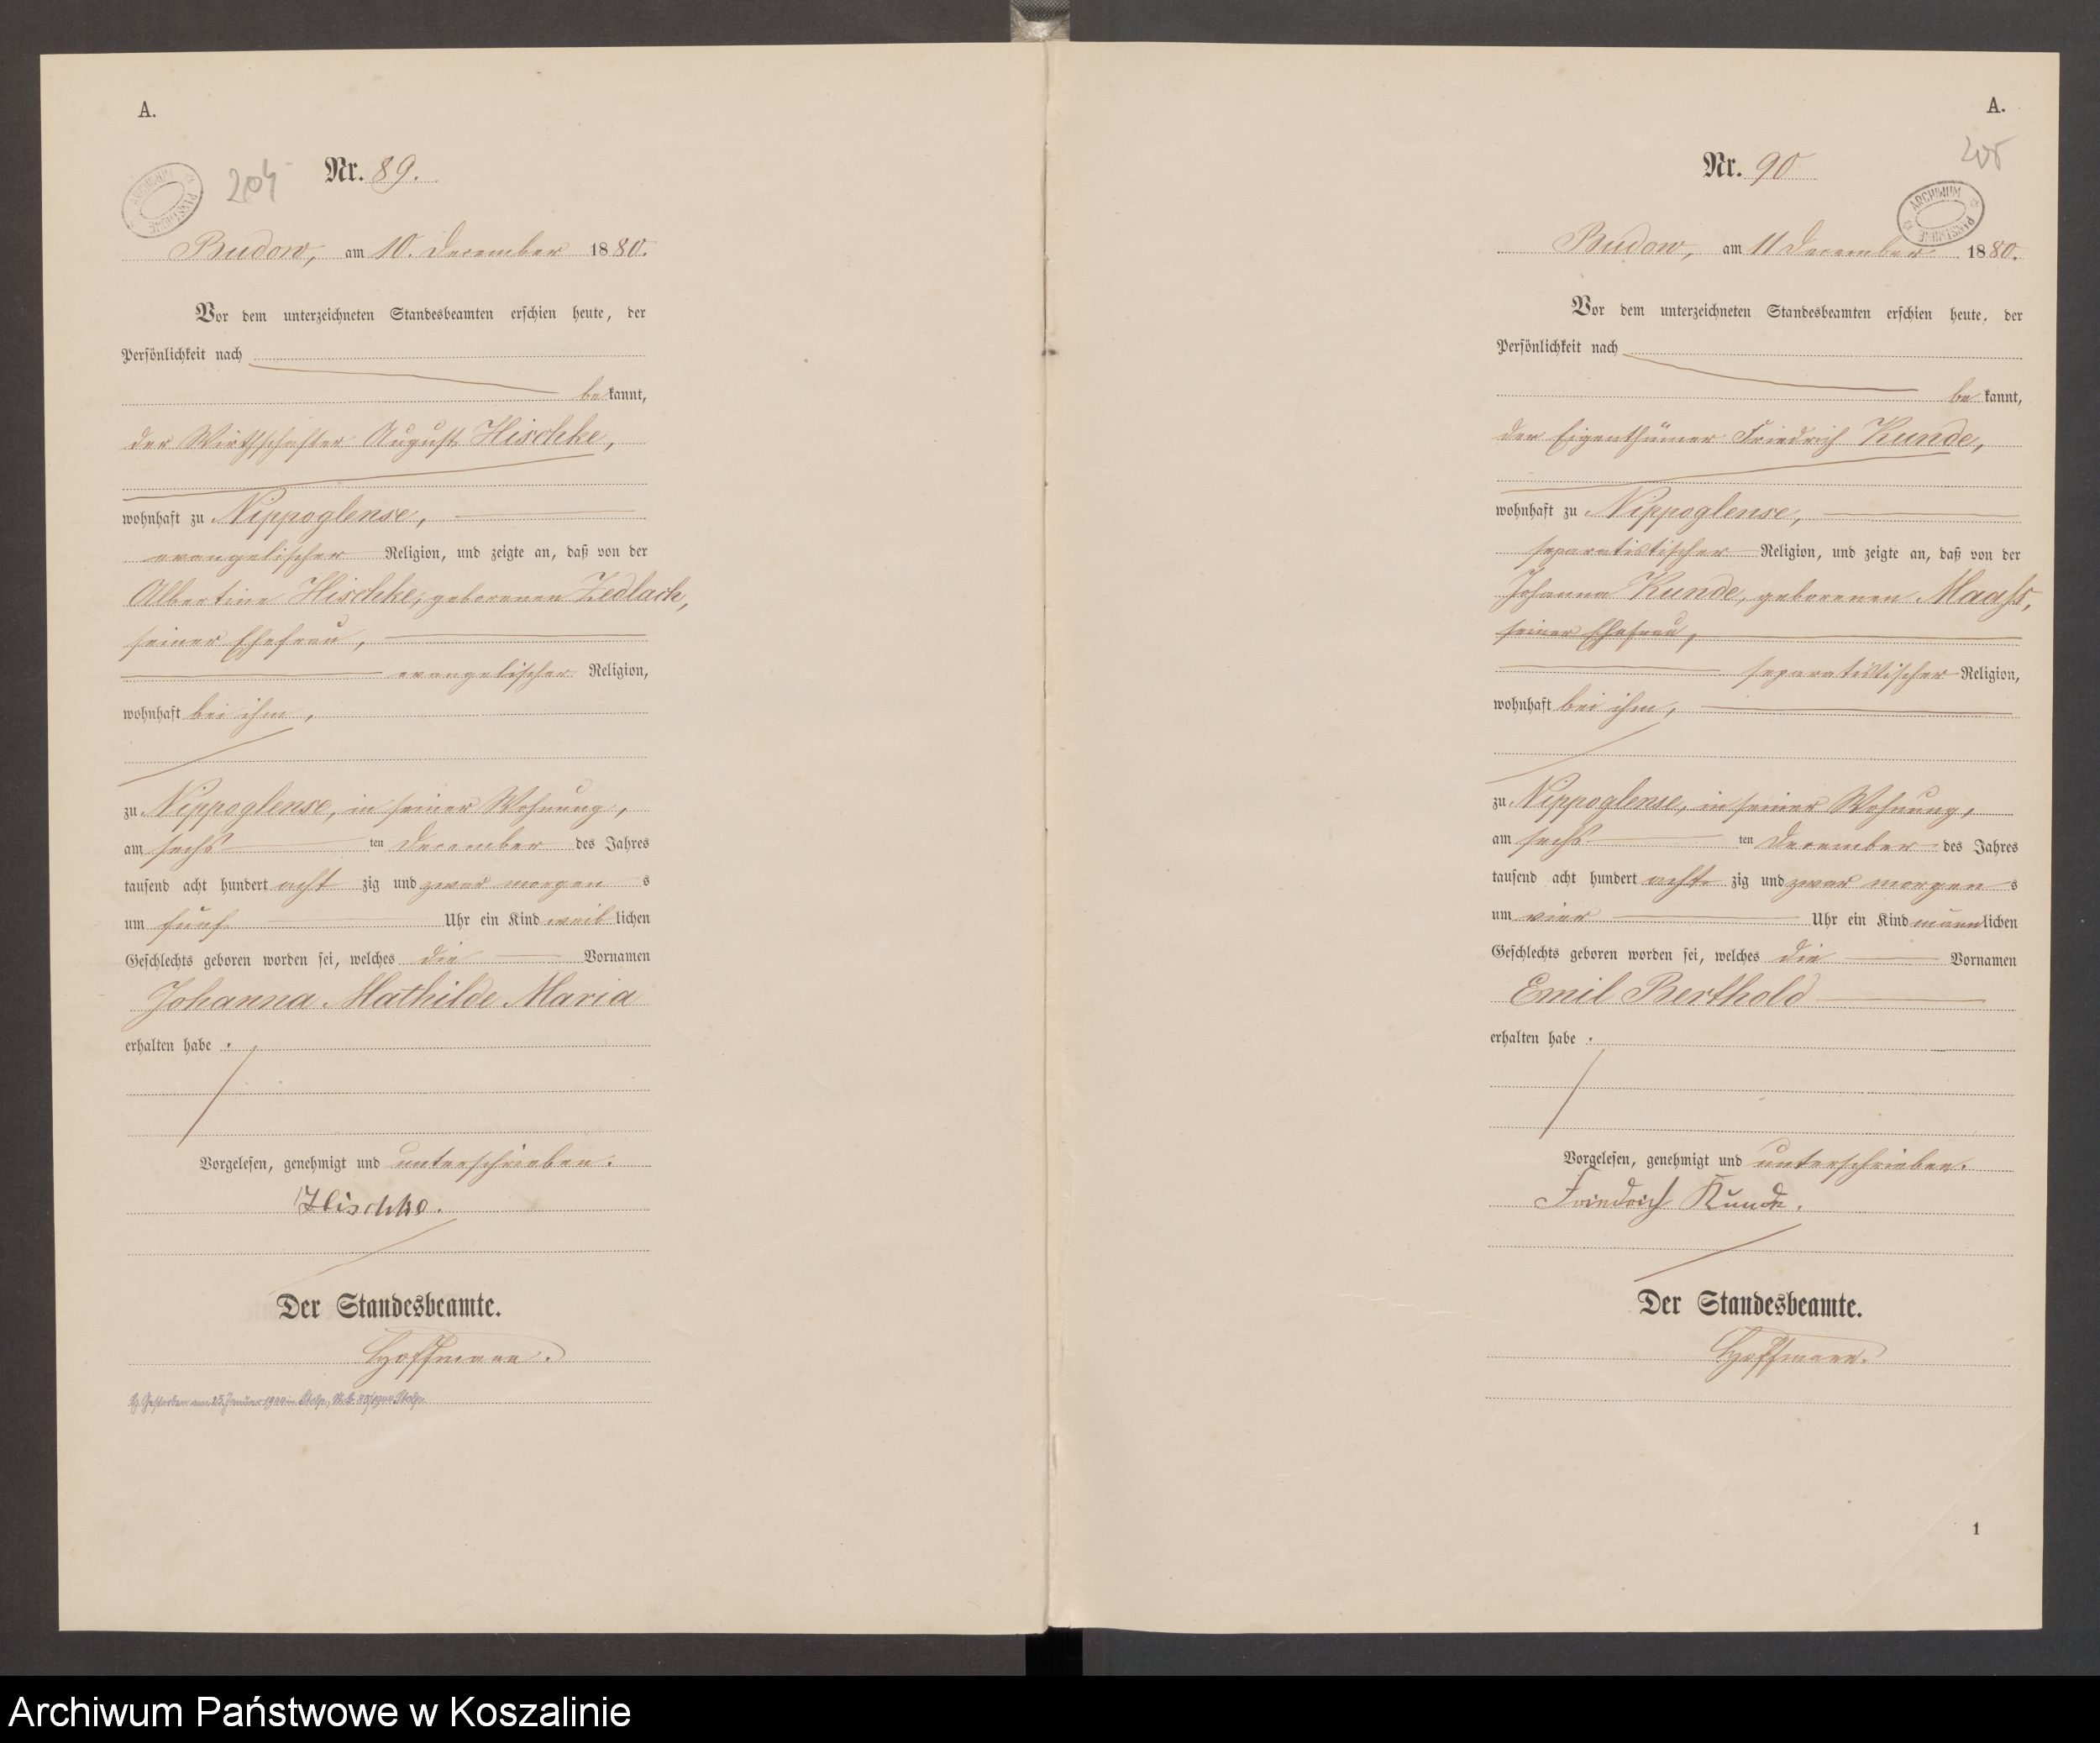 A.
204
Nr. 89.
ARCHIWUM PAŃSTWOWE
Budow, am 10. December 1880.
Vor dem unterzeichneten Standesbeamten erschien heute, der
Persönlichkeit nach
bekannt,
der Wirthschafter August Hischke,
wohnhaft zu Nippoglense,
evangelischer Religion, und zeigte an, daß von der
Albertine Hischke, geborenen Zedlach,
seiner Ehefrau,
evangelischer Religion,
wohnhaft bei ihm,
zu Nippoglense, in seiner Wohnung,
am sechs ten December des Jahres
tausend acht hundert acht zig und zwar morgen s
um fünf Uhr ein Kind weiblichen
Geschlechts geboren worden sei, welches die Vornamen
Johanna Mathilde Maria
erhalten habe.
Vorgelesen, genehmigt und unterschrieben.
Hischke.
Der Standesbeamte.
Hoffmann.
Gestorben am 25. Januar in Stolp, Stolp.
A.
205
Nr. 90
ARCHIWUM PAŃSTWOWE
Budow, am 11 December 1880.
Vor dem unterzeichneten Standesbeamten erschien heute, der
Persönlichkeit nach
bekannt,
der Eigenthümer Friedrich Kunde,
wohnhaft zu Nippoglense,
separatistischer Religion, und zeigte an, daß von der
Johanna Kunde, geborenen Maaß,
seiner Ehefrau,
separatistischer Religion,
wohnhaft bei ihm,
zu Nippoglense, in seiner Wohnung,
am sechs ten December des Jahres
tausend acht hundert acht zig und zwar morgen s
um vier Uhr ein Kind männlichen
Geschlechts geboren worden sei, welches die Vornamen
Emil Berthold
erhalten habe.
Vorgelesen, genehmigt und unterschrieben.
Friedrich Kunde.
Der Standesbeamte.
Hoffmann.
1
Archiwum Państwowe w Koszalinie